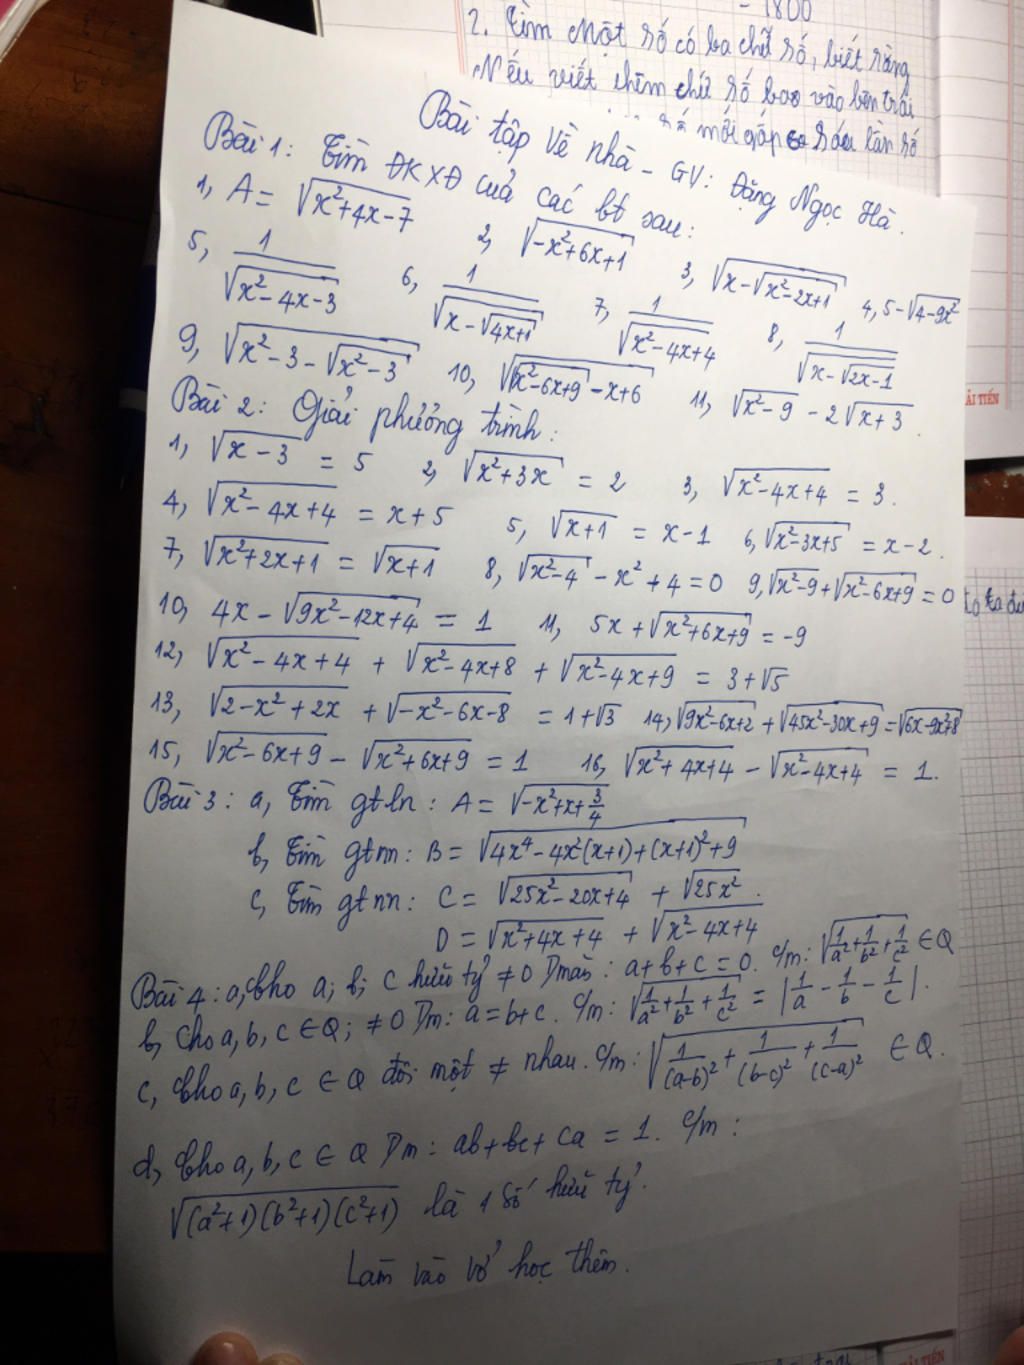 - 1800
2. Tìm một số có ba chữ số, biết rằng
Nếu viết thêm chữ số vào bên trái
số mới gấp sáu lần số
Bài tập Về nhà - GV: Đặng Ngọc Hà.
Bài 1: Tìm ĐKXĐ của các bt sau:
1, A = √(x²+4x-7) 2, √(-x²+6x+1) 3, √(x-√(x²-2x+1)) 4, 5-√(4-9x²)
5, 1/√(x²-4x-3) 6, 1/√(x-√(4x+1)) 7, 1/√(x²-4x+4) 8, 1/√(x-√(2x-1))
9, √(x²-3-√(x²-3)) 10, √(√(x²-6x+9)-x+6) 11, √(x²-9) - 2√(x+3).
Bài 2: Giải phương trình:
1, √(x-3) = 5 2, √(x²+3x) = 2 3, √(x²-4x+4) = 3.
4, √(x²-4x+4) = x+5 5, √(x+1) = x-1 6, √(x²-3x+5) = x-2.
7, √(x²+2x+1) = √(x+1) 8, √(x²-4) - x²+4=0 9, √(x²-9)+√(x²-6x+9) = 0
10, 4x - √(9x²-12x+4) = 1 11, 5x+√(x²+6x+9) = -9
12, √(x²-4x+4) + √(x²-4x+8) + √(x²-4x+9) = 3+√5
13, √(2-x²+2x) + √(-x²-6x-8) = 1+√3 14, √(9x²-6x+2) + √(45x²-30x+9) = √(6x-9x²+8)
15, √(x²-6x+9) - √(x²+6x+9) = 1 16, √(x²+4x+4) - √(x²-4x+4) = 1.
Bài 3: a, Tìm gtln: A = √(-x²+x+3/4)
b, Tìm gtnn: B = √(4x⁴-4x²(x+1)+(x+1)²+9)
c, Tìm gtnn: C = √(25x²-20x+4) + √(25x²).
D = √(x²+4x+4) + √(x²-4x+4)
Bài 4: a, Cho a; b; c hữu tỷ ≠0 : a+b+c=0. c/m: √(1/a²+1/b²+1/c²) ∈ Q
b, Cho a, b, c ∈ Q; ≠0 Dm: a=b+c. c/m: √(1/a²+1/b²+1/c²) = |1/a - 1/b - 1/c|.
c, Cho a, b, c ∈ Q đôi một ≠ nhau. c/m: √(1/(a-b)² + 1/(b-c)² + 1/(c-a)²) ∈ Q.
d, Cho a, b, c ∈ Q Dm: ab+bc+ca = 1. c/m:
√((a²+1)(b²+1)(c²+1)) là 1 số hữu tỷ.
Làm vào vở học thêm.
ẢI TIẾN